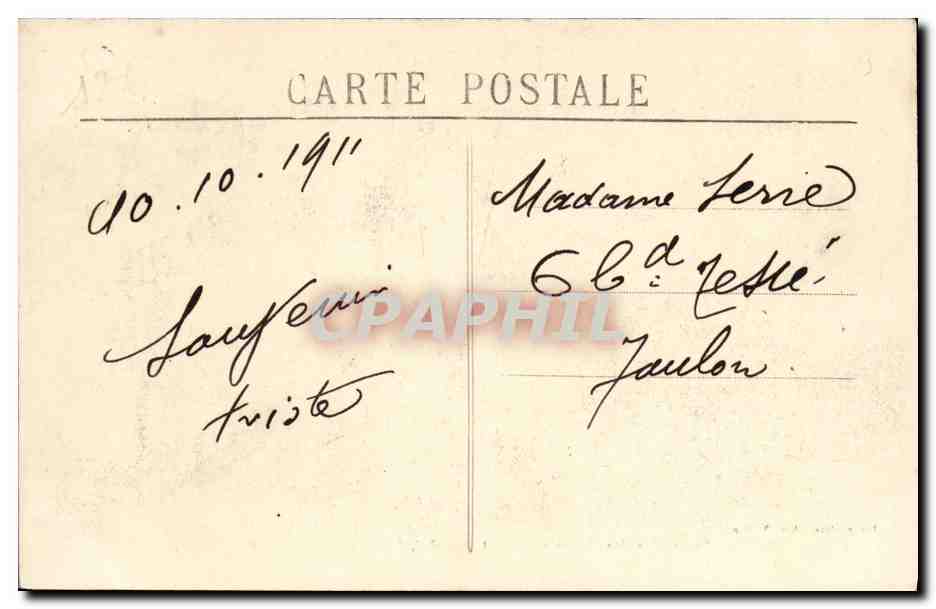 CARTE POSTALE
10.10.1911
Souvenir
triste
Madame Serre
6 bd Tessé
Toulon.
CPAPHIL